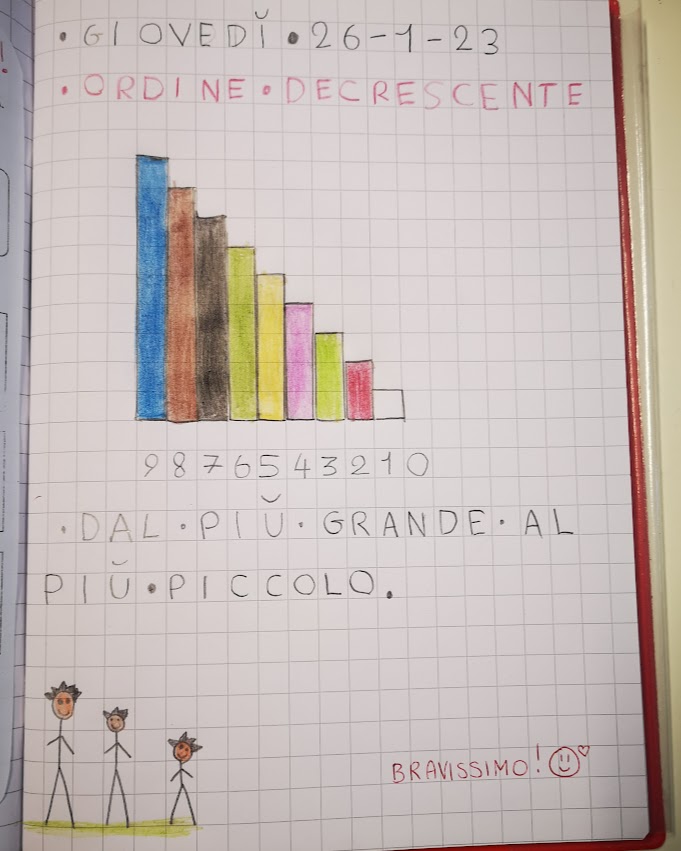 • GIOVEDĬ • 26-1-23
• ORDINE • DECRESCENTE
9 8 7 6 5 4 3 2 1 0
• DAL • PIŬ • GRANDE • AL
PIŬ • PICCOLO.
BRAVISSIMO!